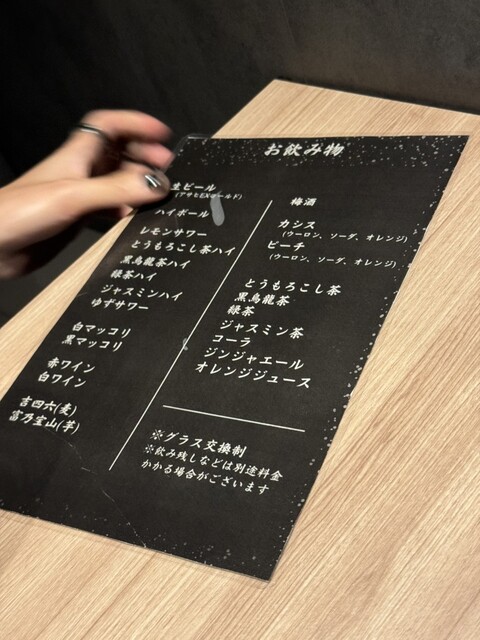 お飲み物
生ビール
(アサヒEXゴールド)
ハイボール
レモンサワー
とうもろこし茶ハイ
黒烏龍茶ハイ
緑茶ハイ
ジャスミンハイ
ゆずサワー
白マッコリ
黒マッコリ
赤ワイン
白ワイン
吉四六(麦)
富乃宝山(芋)
梅酒
カシス
(ウーロン、ソーダ、オレンジ)
ピーチ
(ウーロン、ソーダ、オレンジ)
とうもろこし茶
黒烏龍茶
緑茶
ジャスミン茶
コーラ
ジンジャエール
オレンジジュース
※グラス交換制
※飲み残しなどは別途料金
かかる場合がございます